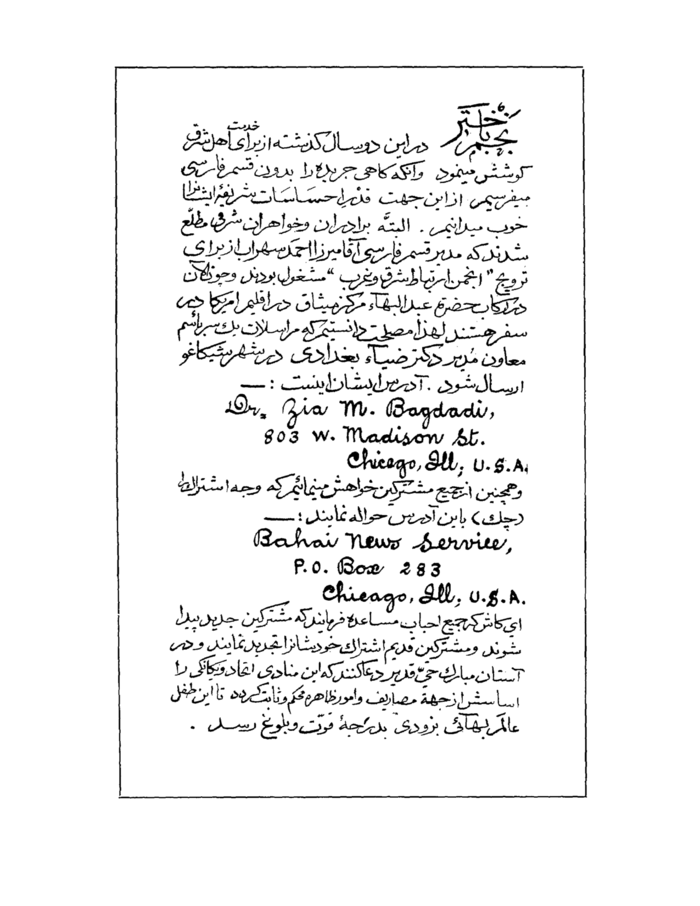 نجم باختر در این دو سال گذشته از برای خدمت اهل شرق
کوشش مینمود وانکه کاهی جریده را بدون قسم فارسی
میفرسیم از این جهت قدر احساسات شریفهٔ ایشانرا
خوب میدانیم . البتّه برادران وخواهران شرقی مطّلع
شدند که مدیر قسم فارسی آقا میرزا احمد سهراب از برای
ترویج "انجمن ارتباط شرق وغرب" مشغول بودند وچون الآن
در رکاب حضرة عبدالبهاء مرکز میثاق در اقلیم امریکا در
سفر هستند لهذا مصلحت دانستیم که مراسلات یک سر باسم
معاون مدیر دکتر ضیاء بغدادی در شهر شیکاغو
ارسال شود . آدرس ایشان اینست : —
Dr. Zia M. Bagdadi,
803 W. Madison St.
Chicago, Ill., U.S.A.
وهمچنین از جمیع مشترکین خواهش مینمائیم که وجه اشتراک را
(چک) باین آدرس حواله نمایند : —
Bahai News Service,
P.O. Box 283
Chicago, Ill., U.S.A.
ای کاش که جمیع احباب مساعده فرمایند که مشترکین جدید پیدا
شوند ومشترکین قدیم اشتراک خودشانرا تجدید نمایند و در
آستان مبارک حیّ قدیر دعا کنند که این منادی اتحاد ویگانگی را
اساسش از جهة مصاریف وامور ظاهره محکم وثابت کردد تا این طفل
عالم بهائی بزودی بدرجهٔ قوّت وبلوغ رسد .